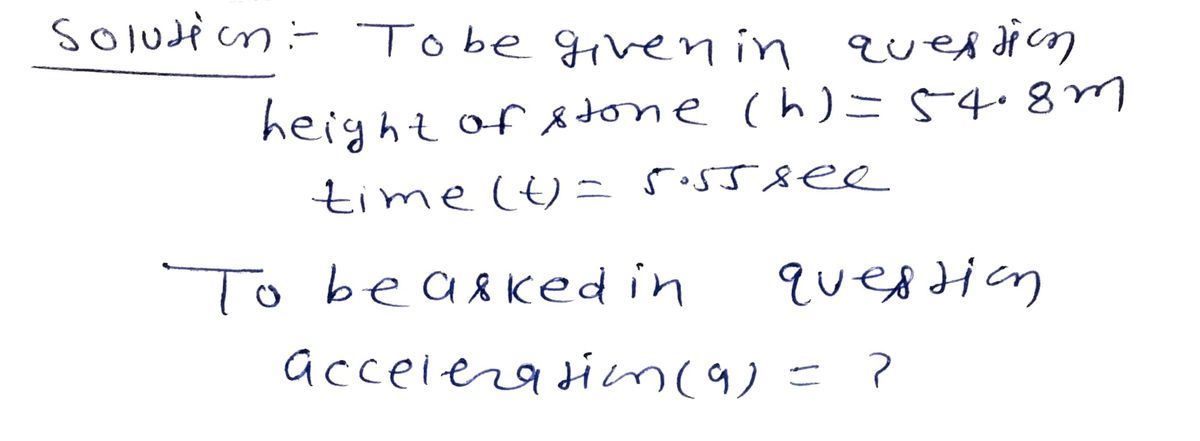 Solution :- To be given in question
height of stone (h) = 54.8m
time (t) = 5.55 sec
To be asked in question
acceleration (a) = ?